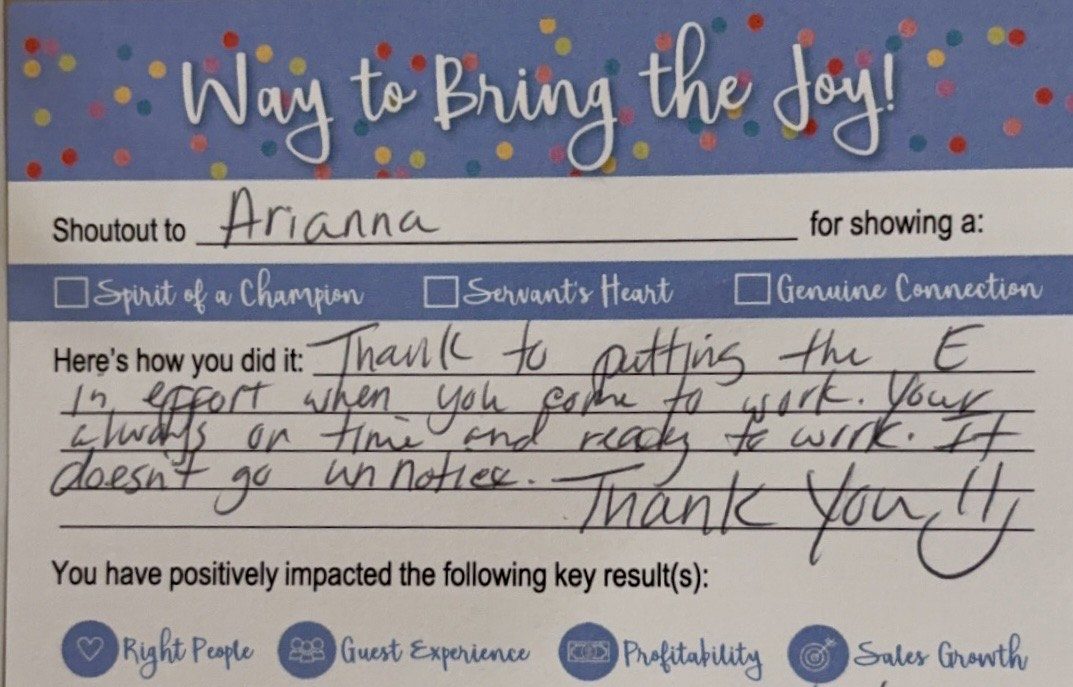 Way to Bring the Joy!
Shoutout to Arianna for showing a:
Spirit of a Champion Servant's Heart Genuine Connection
Here's how you did it: Thank to putting the E
in effort when you come to work. Your
always on time and ready to work. It
doesn't go un notice. Thank You
You have positively impacted the following key result(s):
Right People Guest Experience Profitability Sales Growth